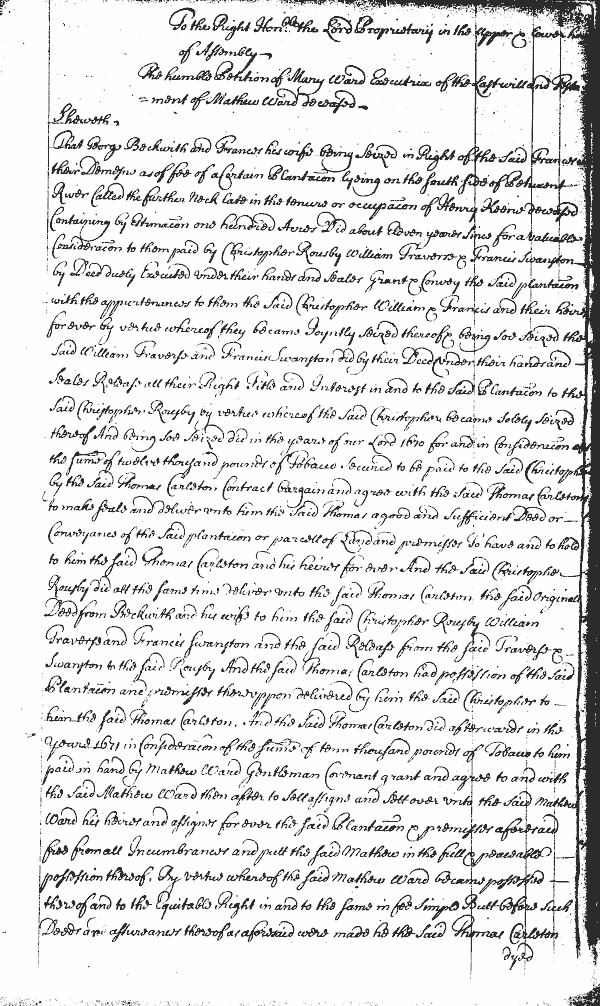 To the Right Hon:ble the Lord Proprietary in the upper & Lower
of Assembly
The humble Petition of Mary Ward Executrix of the Last will and Testa
=ment of Mathew Ward deceased
Sheweth
That George Beckwith and Frances his wife being Seized in Right of the Said Frances
their Demesne as of fee of a Certain Plantacōn Lyeing on the South Side of Petuxent
River Called the further Neck Late in the tenure or occupacōn of Henry Keene deceased
Containing by Estimacōn one hundred Acres Did about Eleven yeares Since for a valuable
Consideracōn to them paid by Christopher Rousby William Traverse & Francis Swanston
by Deed duely Executed under their hands and Seales Grant & Convey the Said plantacōn
with the appurtenances to them the Said Christopher William & Francis and their heires
for ever by vertue whereof they became Joyntly Seized thereof & being Soe Seized the
Said William Traverse and Francis Swanston did by their Deed under their hands and
Seales Release all their Right Title and Interest in and to the Said Plantacōn to the
Said Christopher Rousby by vertue whereof the Said Christopher became Solely Seized
thereof And being Soe Seized did in the yeare of our Lord 1670 for and in Consideracōn of
the Sume of twelve thousand pounds of Tobacco Secured to be paid to the Said Christopher
by the Said Thomas Carleton Contract bargain and agree with the Said Thomas Carleton
to make Seale and deliver unto him the Said Thomas a good and Sufficient Deed or
Conveyance of the Said plantacōn or parcell of Land and premisses To have and to hold
to him the said Thomas Carleton and his heires for ever And the Said Christopher
Rousby did att the Same time deliver unto the Said Thomas Carleton the Said Originall
Deed from Beckwith and his wife to him the said Christopher Rousby William
Traverse and Francis Swanston and the said Release from the said Traverse &
Swanston to the Said Rousby And the Said Thomas Carleton had possession of the Said
Plantacōn and premisses thereuppon delivered by him the Said Christopher to
him the said Thomas Carleton. And the Said Thomas Carleton did afterwards in the
Yeare 1671 in Consideracōn of the Sume of tenn thousand pounds of Tobacco to him
paid in hand by Mathew Ward Gentleman Covenant grant and agree to and with
the Said Mathew Ward then after to Sell assigne and Sett over unto the Said Mathew
Ward his heires and assignes for ever the Said Plantacōn & premisses aforesaid
free from all Incumbrances and putt the said Mathew in the full & peaceable
possession thereof. By vertue whereof the said Mathew Ward became possessed
thereof and to the Equitable Right in and to the same in fee Simple Butt before Such
Deeds and assureances thereof as aforesaid were made he the Said Thomas Carleton
dyed